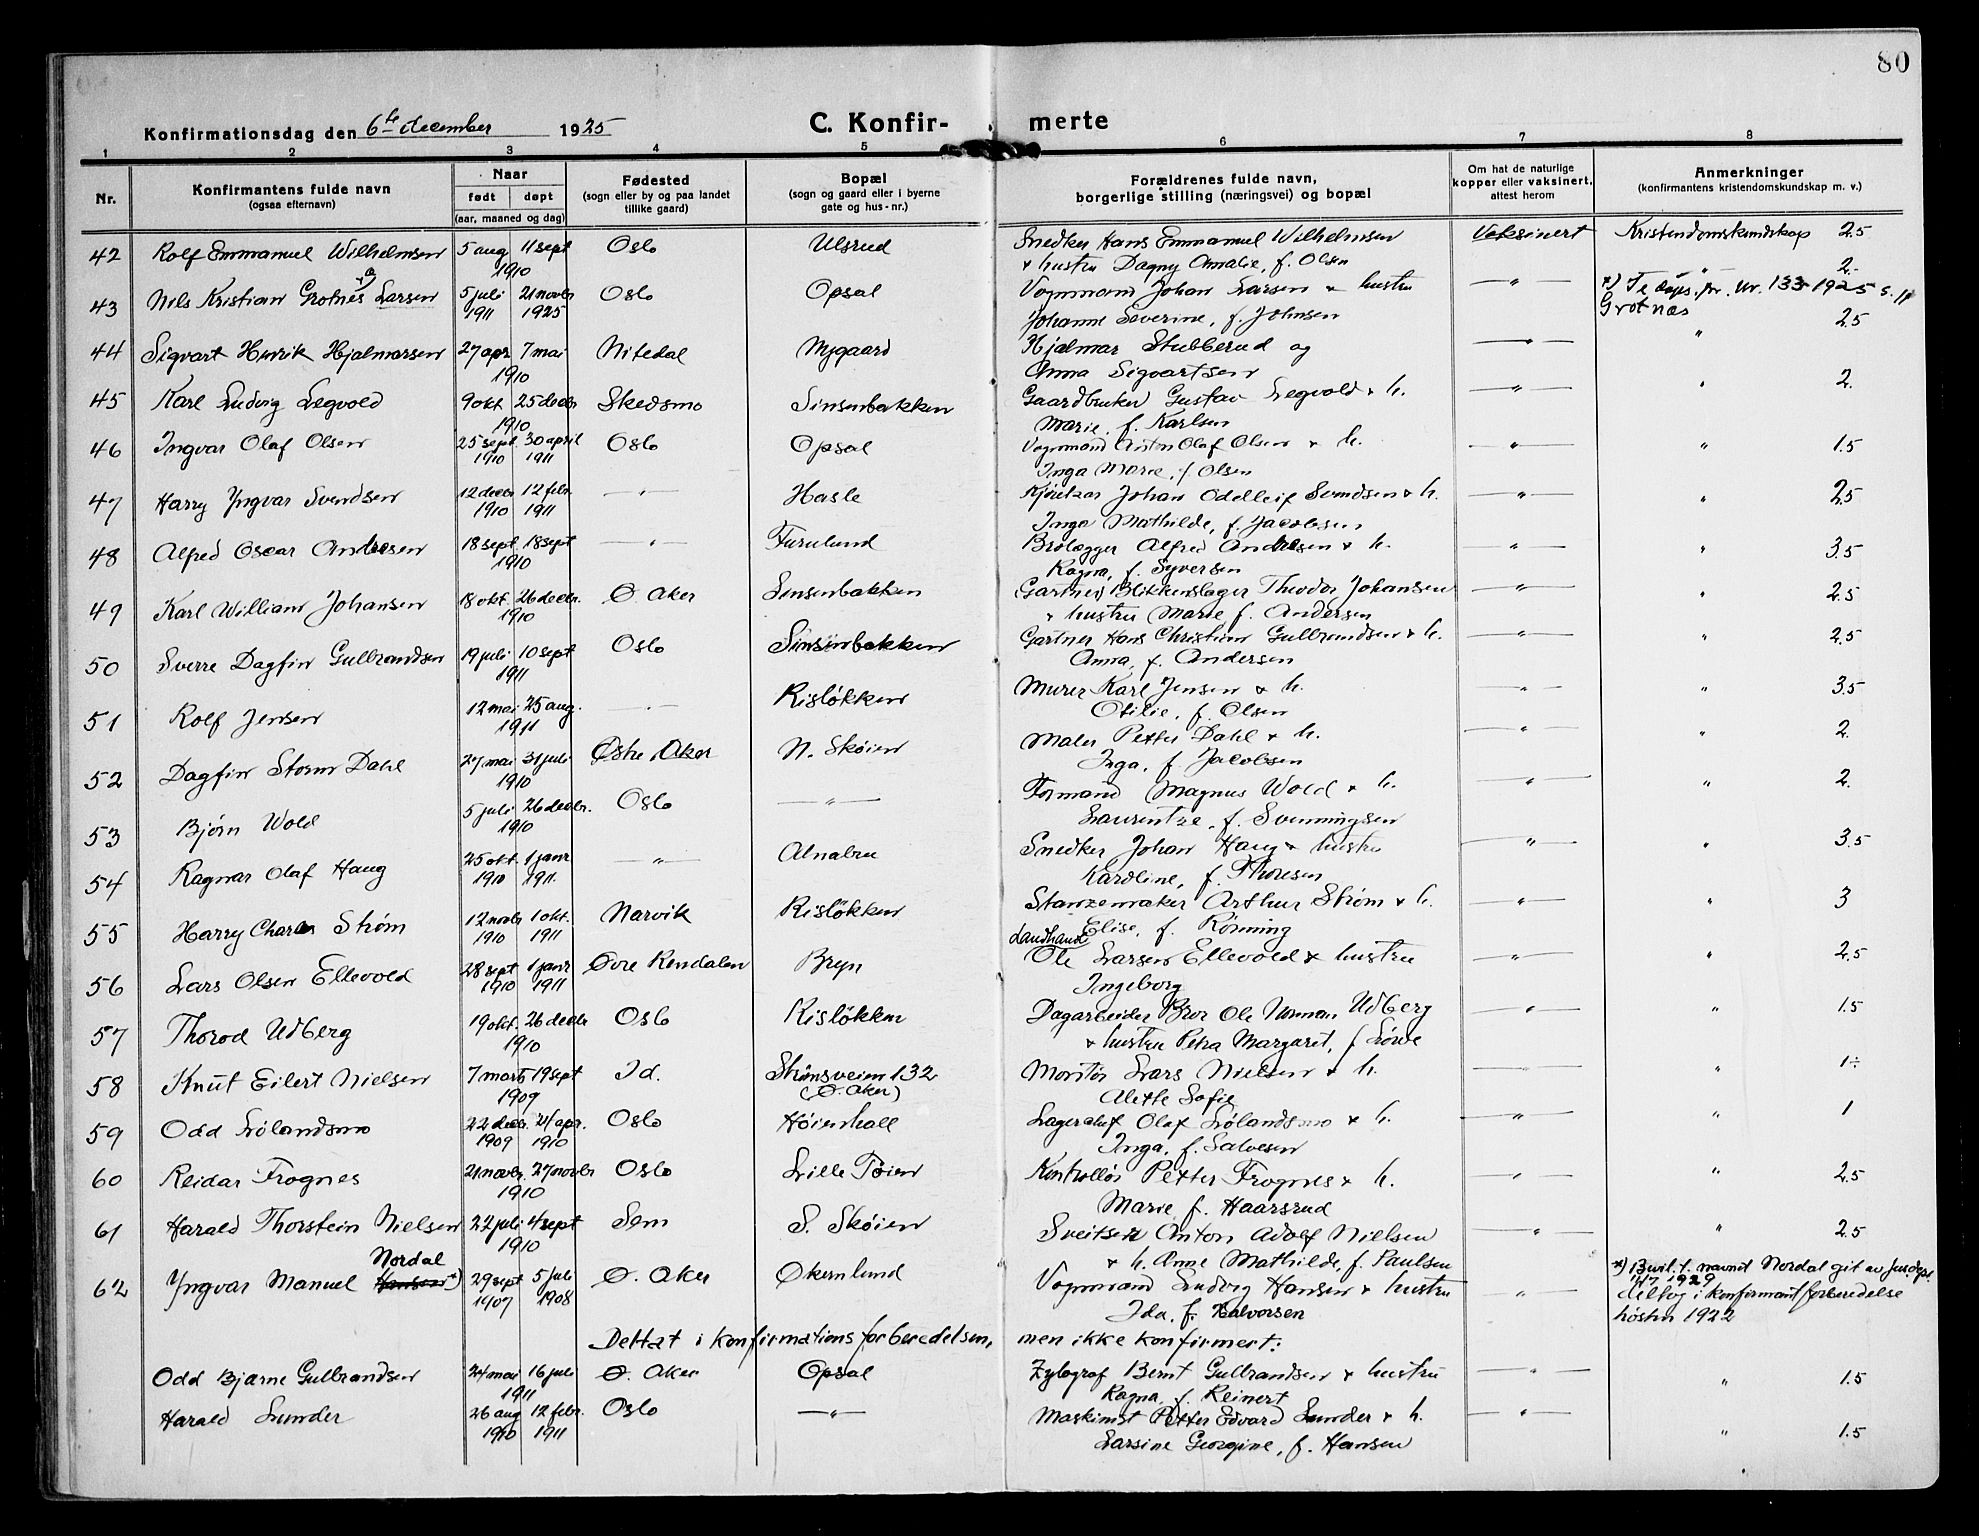 80
Konfirmationsdag den 6te december 1925 C. Konfir- merte
1 2 3 4 5 6 7 8
Nr. Konfirmantens fulde navn (ogsaa efternavn) Naar født døpt (aar, maaned og dag) Fødested (sogn eller by og paa landet tillike gaard) Bopæl (sogn og gaard eller i byerne gate og hus-nr.) Forældrenes fulde navn, borgerlige stilling (næringsvei) og bopæl Om hat de naturlige kopper eller vaksinert, attest herom Anmerkninger (konfirmantens kristendomskundskap m. v.)
42 Rolf Emmanuel Wilhelmsen 5 aug 11 sept 1910 Oslo Ulsrud Snedker Hans Emmanuel Wilhelmsen Vaksinert Kristendomskundskap 2.5
& hustru Dagny Amalie, f. Olsen
43 Nils Kristian Grotnes Larsen 5 juli 1911 21 novbr 1925 Oslo Opsal Vognmand Johan Larsen & hustru " " 2.-
Johanne Severine, f. Johnsen
Nr. 133 1925 s. 11
Grotnæs
44 Sigvart Henrik Hjalmarsen 27 apr 7 mai 1910 Nitedal Nygaard Hjalmar Stubberud og " " 2.5
Anna Sigvartsen
45 Karl Ludvig Legvold 9 okt 25 decbr 1910 Skedsmo Sinsenbakken Gaardbruker Gustav Legvold & h. " " 2.
Marie, f. Karlsen
46 Ingvar Olaf Olsen 25 sept. 1910 30 april 1911 Oslo Opsal Vognmand Anton Olaf Olsen & h. " " 1.5
Inga Marie, f Olsen
47 Harry Yngvar Svendsen 12 decbr 1910 12 febr. 1911 " Hasle Johan Odelleif Svendsen & h. " " 2.5
Inga Mathilde, f. Jacobsen
48 Alfred Oscar Andresen 18 sept 18 sept 1910 " Furulund Brolægger Alfred Andresen & h. " " 3.5
Ragna, f. Syversen
49 Karl William Johansen 18 okt. 26 decbr. 1910 Ø. Aker Sinsenbakken Gartner, Blikkenslager Theodor Johansen " " 2.5
& hustru Marie f. Andersen
50 Sverre Dagfin Gulbrandsen 19 juli 10 sept 1911 Oslo Sinsenbakken Gartner Hans Christian Gulbrandsen & h. " " 2.5
Anna, f. Andersen
51 Rolf Jensen 12 mai 25 aug. 1911 " Risløkken Murer Karl Jensen & h. " " 3.5
Otilie, f. Olsen
52 Dagfin Storm Dahl 27 mai 31 juli 1910 Østre Aker N. Skøien Maler Petter Dahl & h. " " 2.
Inga, f. Jacobsen
53 Bjørn Wold 5 juli 26 decbr. 1910 Oslo " Formand Magnus Wold & h. " " 2.
Laurentze, f. Svenningsen
54 Ragnar Olaf Haug 25 okt. 1910 1 janr 1911. " Alnabru Snedker Johan Haug & hustru " " 3.5
Karoline, f. Thoresen
55 Harry Charles Strøm 12 novbr 1910 1 okt. 1911 Narvik Risløkken Stanzemaker Arthur Strøm & h. " " 3
Elise, f. Rønning
56 Lars Olsen Ellevold 28 sept 1910 1 janr 1911 Øvre Rendalen Bryn Landhandl Ole Larsen Ellevold & hustru " " 2.5
Ingeborg
57 Thorod Udberg 19 okt. 26 decbr 1910 Oslo Risløkken Dagarbeider Bror Ole Norman Udberg " " 1.5
& hustru Petra Margaret, f.
58 Knut Eilert Nielsen 7 marts 19 sept 1909 Id. Strømsveien 132 (Ø. Aker) Montør Lars Nielsen & h. " " 1÷
Alette Sofie
59 Odd Lølandsmo 22 decbr. 1909 21 apr. 1910 Oslo Høienhall Lagerchef Olaf Lølandsmo & h. " " 1
Inga, f. Salvesen
60 Reidar Frognes 21 novbr. 27 novbr 1910 Oslo Lille Tøien Kontrollør Petter Frognes & h. " " 2.5
Marie f. Haarsrud
61 Harald Thorstein Nielsen 22 juli 4 sept 1910 Sem S. Skøien Sveitser Anton Adolf Nielsen " " 2.5
& h. Anne Mathilde, f. Paulsen
62 Yngvar Manuel Hansen *) Nordal 29 sept 1907 5 juli 1908 Ø. Aker Økernlund Vognmand Ludvig Hansen & hustru "
Ida, f. Halvorsen
*) Bevil. t. navnet Nordal git av Jus.dept.
1/7 1929
deltog i konfirmantforberedelse
høsten 1922
Deltat i konfirmationsforberedelsen, men ikke konfirmert:
Odd Bjarne Gulbrandsen 24 mai 16 juli 1911 Ø. Aker Opsal Xylograf Bernt Gulbrandsen & hustru " " 1.5
Ragna, f. Reinert
Harald Lunder 26 aug 1910 12 febr. 1911 Oslo " Maskinist Petter Edvard Lunder & h. " " 1.5
Larsine Georgine, f. Hansen